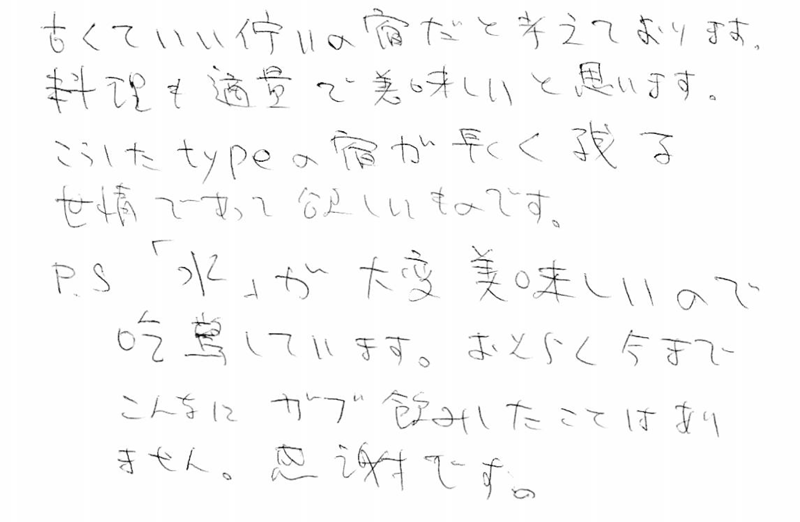 古くていい佇いの宿だと考えております。
料理も適量で美味しいと思います。
こうしたtypeの宿が長く残る
世情であって欲しいものです。
P.S 「水」が大変美味しいので
吃驚しています。おそらく今まで
こんなに ガブ飲みしたことはあり
ません。感謝です。